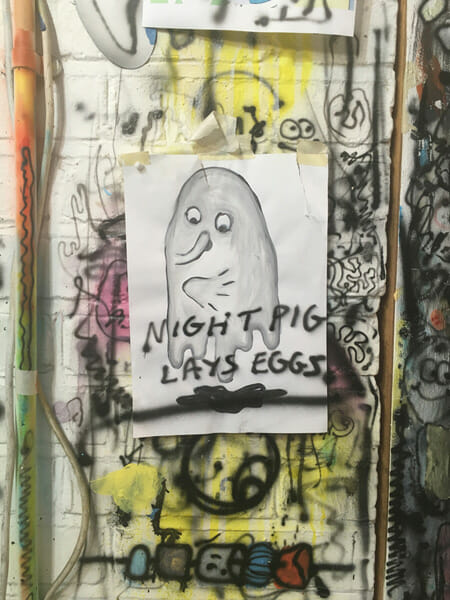 MIGHT PIG
LAYS EGGS